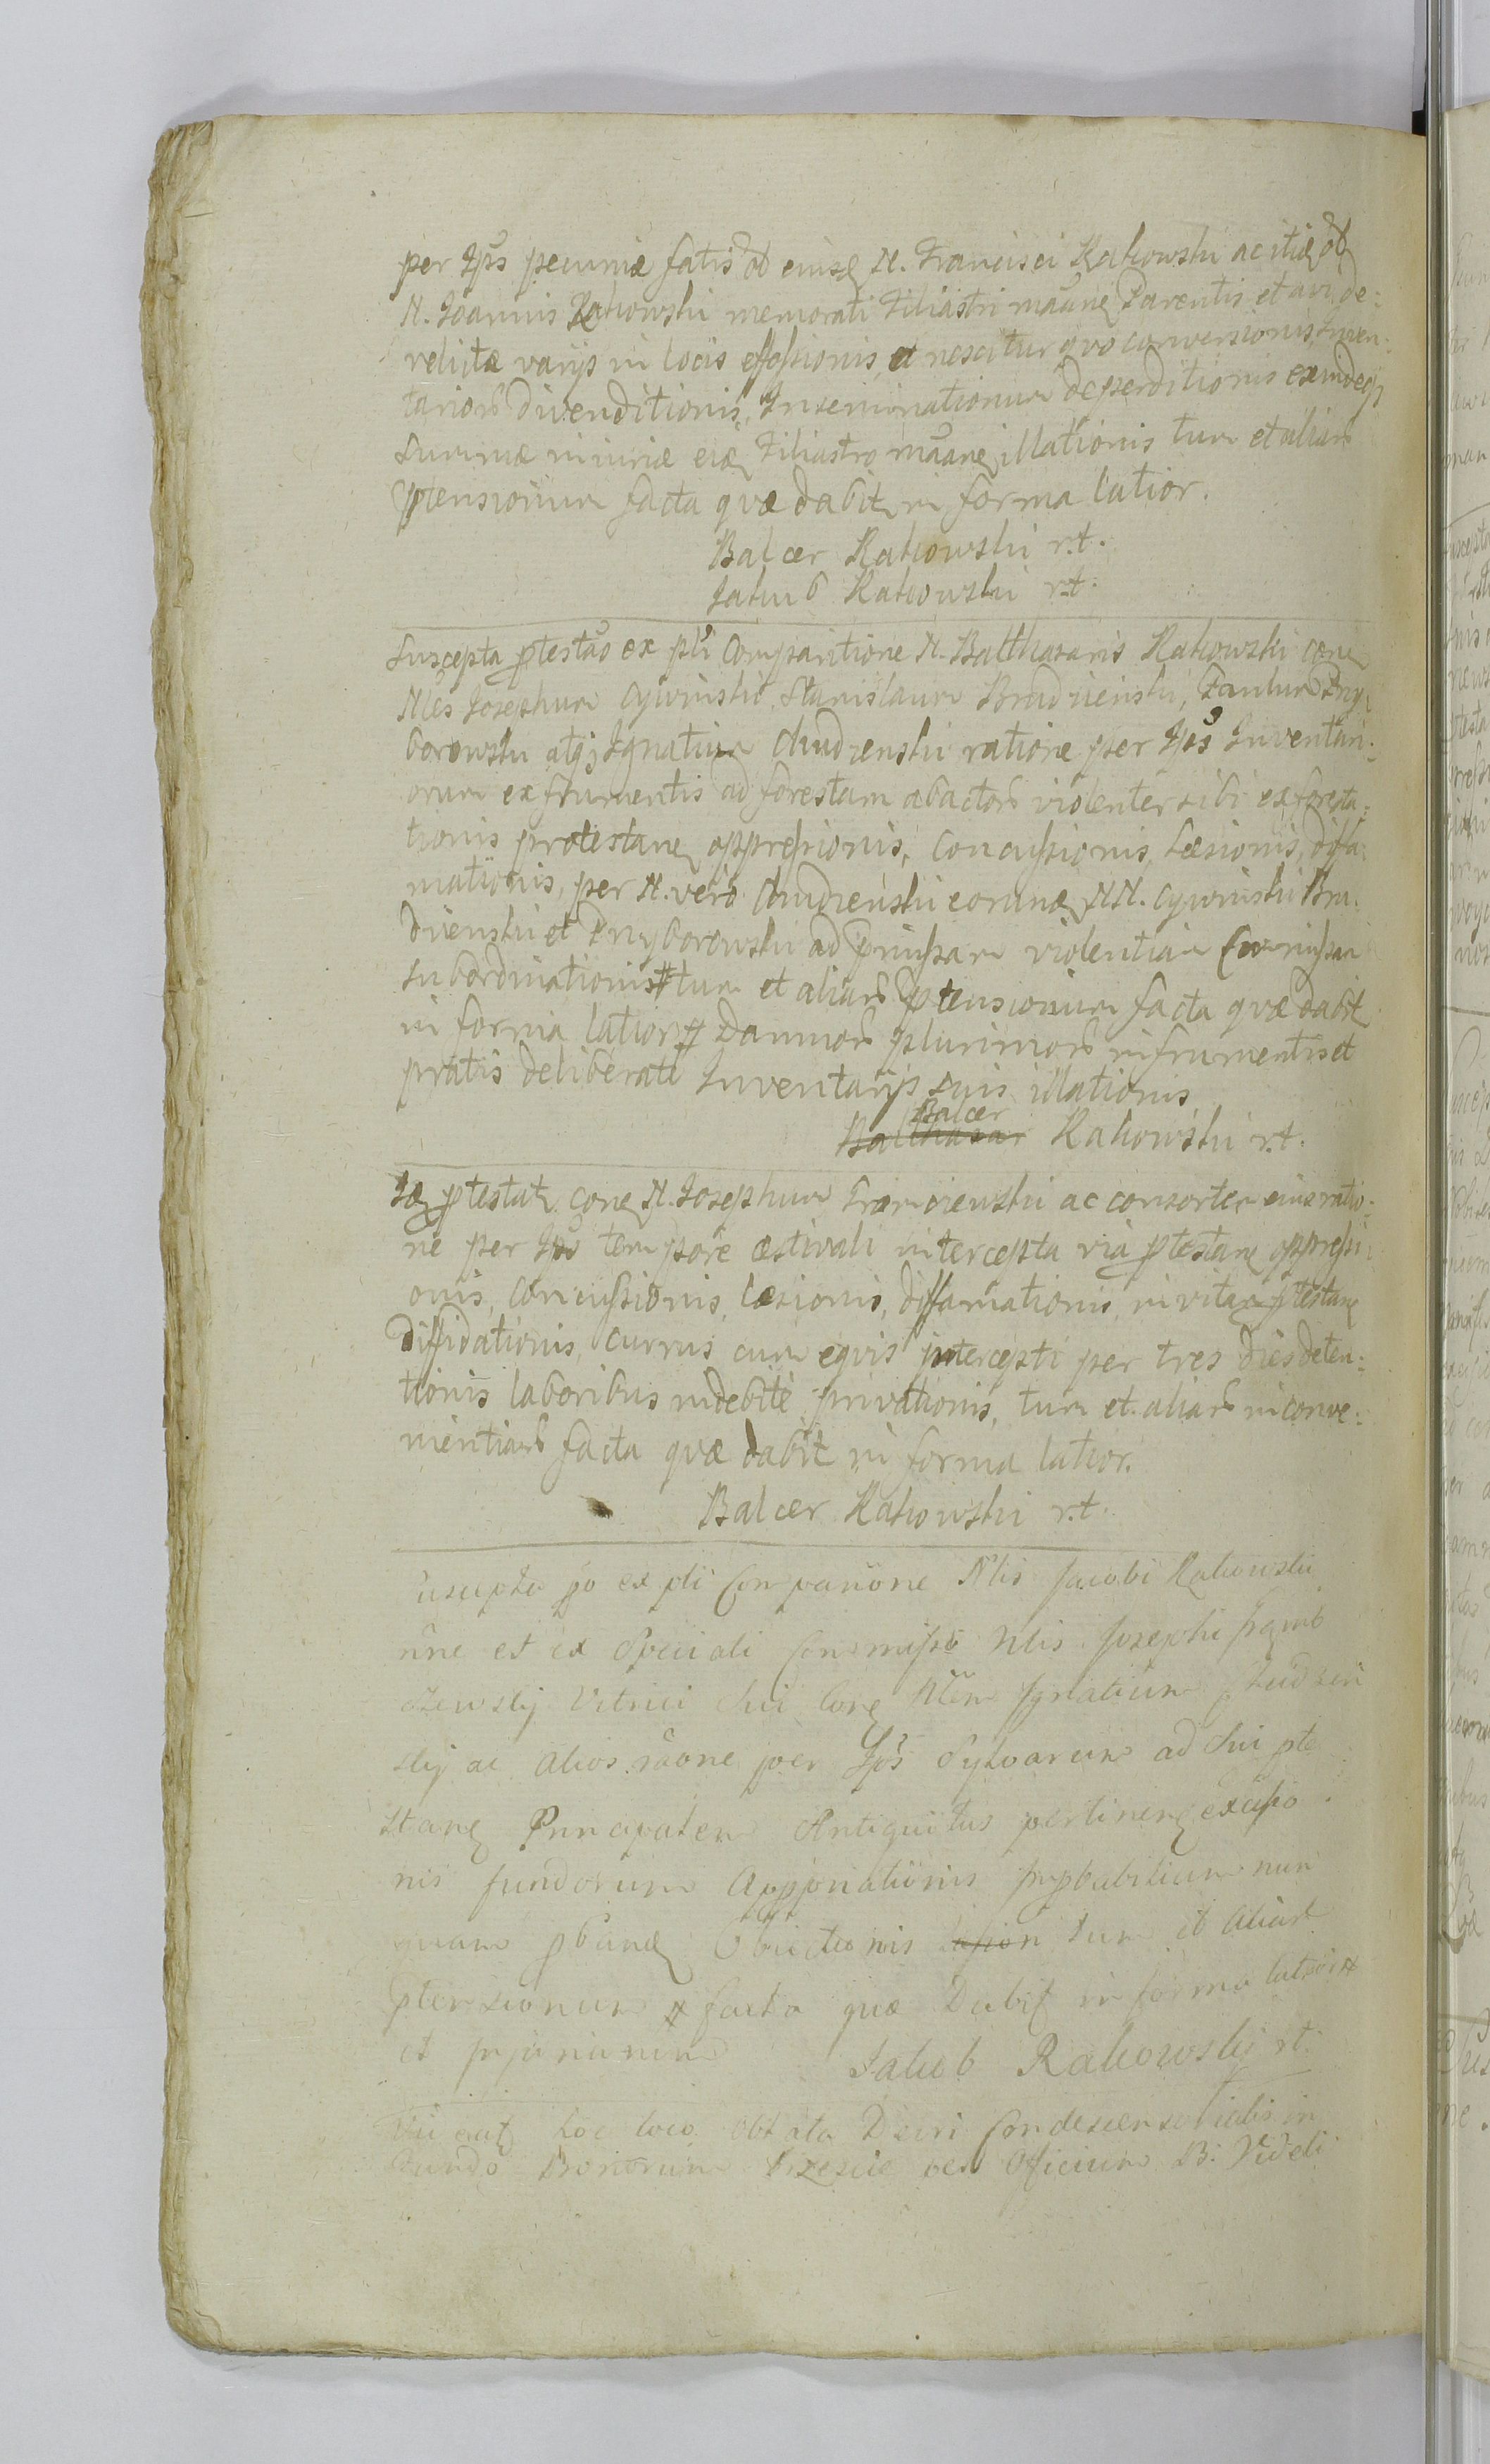 per Ips pecuniæ satis ob eius N. Francisci Rakowski ac itid ob
N. Joannis Rakowski memorati Filiastri maane Parentis et avi de:
relictæ varys in locis effossionis, et nescitur quo conversionis, Inven:
tarior divenditionis, Inseminationum deperditionis exindeq
summæ iniuriæ eid Filiastro maane illationis tum et aliar
ptensionum facta quæ dabit in forma latior.
Balcer Rakowski r.t.
Jakub Rakowski r.t.
Suscepta ptestao ex pli Comparitione N. Balthasaris Rakowski cone
Nles Josephum Cywinski, Stanislaum Brudnienski, Paulum Przy
borowski atq Ignatium Chudzenski ratione per Ips Inventari:
orum ex frumentis ad forestam abactor violenter sibi exforesta:
tionis protestane oppressionis, Concussionis, Læsionis, diffa:
mationis, per N. vero Chudzenski eorund NN. Cywinski Bru:
dnienski et Przyborowski ad pmissam violentiam
subordinationis # tum et aliar ptensionum facta quæ dabit
in forma latior # Damnor plurimor in frumentis et
pratis deliberate Inventarys suis illationis
Balcer
Balthasar Rakowski r.t.
Id ptestat cone N. Josephum ac consortem eius ratio:
ne per Ips tempore æstivali intercepta via ptestane oppressi:
onis, Concussionis, læsionis, diffamationis, in vitam ptestane
diffidationis, currus cum equis intercepti per tres dies deten:
tionis laboribus indebite privationis, tum et aliar inconve:
nientiar facta quæ dabit in forma latior.
Balcer Rakowski r.t.
uscepta po ex pli Comparione Nlis Jacobi Rakowski
nne et ex Speciali Commisso Nlis Josephi
szewskij Vitrici Sui Cone Nlem Ignatium
skij ac Alios raone per Ips Sylvarum ad Sui pte
stane Principalem Antiquitus pertinen exciso
nis fundorum Appropriationis Improbabilium nun
quam pband Obiectionis lasion tum et Aliar
ptensionum # facta quæ Dabit in forma latior #
et Injuriarum Jakub Rakowskij rt.
hoc loco Oblata Decri Condescensorialis in
Fundo Bonorum per Officium B: Videli